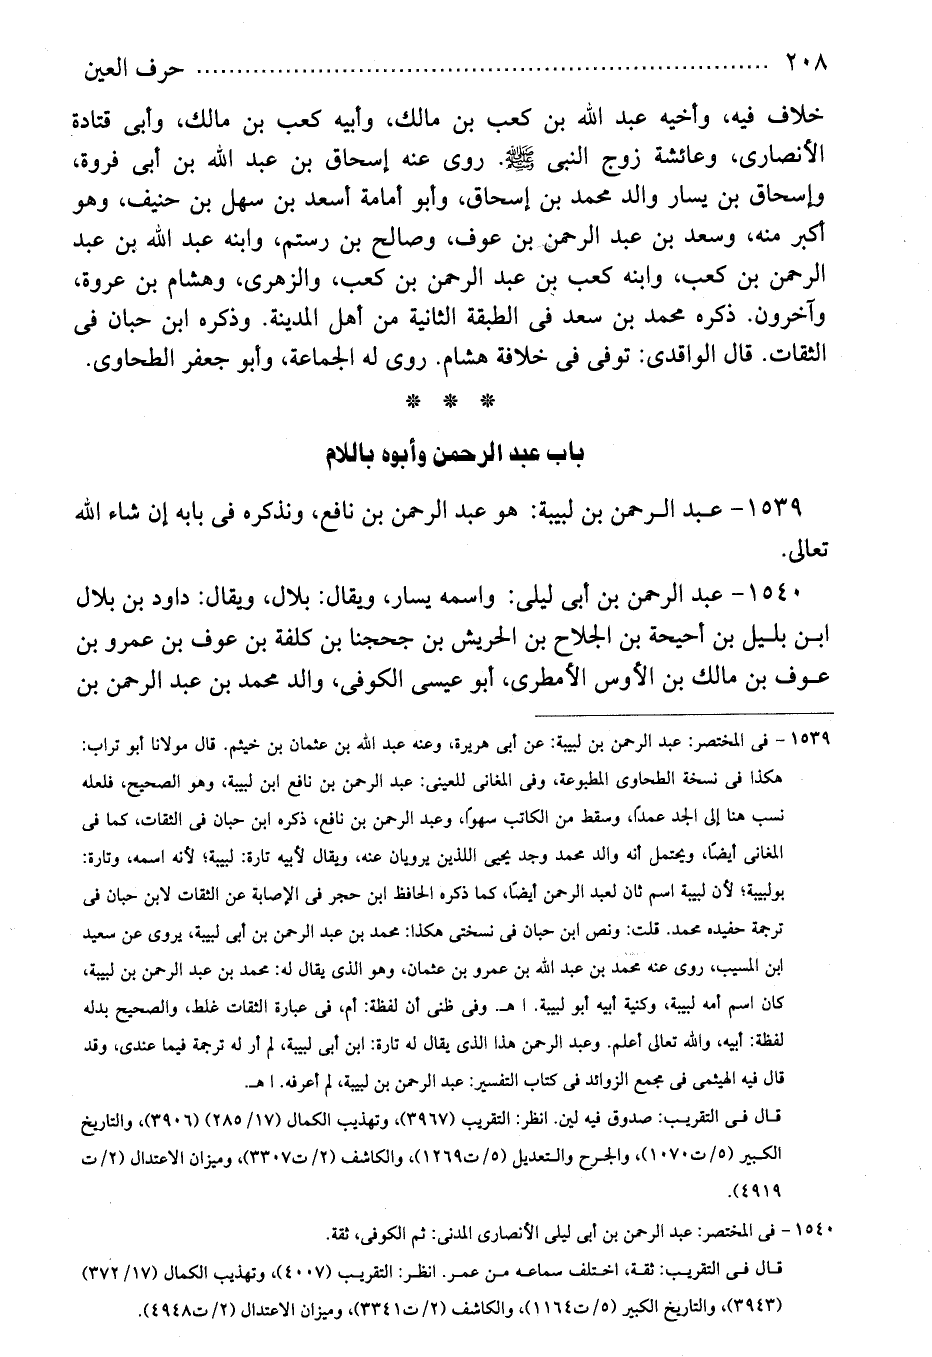 ٢٠٨ ........................................................................ حرف العين
خلاف فيه، وأخيه عبد الله بن كعب بن مالك، وأبيه كعب بن مالك، وأبى قتادة
الأنصارى، وعائشة زوج النبى ﷺ. روى عنه إسحاق بن عبد الله بن أبى فروة،
وإسحاق بن يسار والد محمد بن إسحاق، وأبو أمامة أسعد بن سهل بن حنيف، وهو
أكبر منه، وسعد بن عبد الرحمن بن عوف، وصالح بن رستم، وابنه عبد الله بن عبد
الرحمن بن كعب، وابنه كعب بن عبد الرحمن بن كعب، والزهرى، وهشام بن عروة،
وآخرون. ذكره محمد بن سعد فى الطبقة الثانية من أهل المدينة. وذكره ابن حبان فى
الثقات. قال الواقدى: توفى فى خلافة هشام. روى له الجماعة، وأبو جعفر الطحاوى.
* * *
باب عبد الرحمن وأبوه باللام
١٥٣٩- عبد الرحمن بن لبيبة: هو عبد الرحمن بن نافع، ونذكره فى بابه إن شاء الله
تعالى.
١٥٤٠- عبد الرحمن بن أبى ليلى: واسمه يسار، ويقال: بلال، ويقال: داود بن بلال
ابن بليل بن أحيحة بن الجلاح بن الحريش بن جحجنا بن كلفة بن عوف بن عمرو بن
عوف بن مالك بن الأوس الأمطرى، أبو عيسى الكوفى، والد محمد بن عبد الرحمن بن
١٥٣٩- فى المختصر: عبد الرحمن بن لبيبة: عن أبى هريرة، وعنه عبد الله بن عثمان بن خيثم. قال مولانا أبو تراب:
هكذا فى نسخة الطحاوى المطبوعة، وفى المغانى للعينى: عبد الرحمن بن نافع ابن لبيبة، وهو الصحيح، فلعله
نسب هنا إلى الجد عمدًا، وسقط من الكاتب سهوًا، وعبد الرحمن بن نافع، ذكره ابن حبان فى الثقات، كما فى
المغانى أيضًا، ويحتمل أنه والد محمد وجد يحيى اللذين يرويان عنه، ويقال لأبيه تارة: لبيبة؛ لأنه اسمه، وتارة:
بولبيبة؛ لأن لبيبة اسم ثان لعبد الرحمن أيضًا، كما ذكره الحافظ ابن حجر فى الإصابة عن الثقات لابن حبان فى
ترجمة حفيده محمد. قلت: ونص ابن حبان فى نسختى هكذا: محمد بن عبد الرحمن بن أبى لبيبة، يروى عن سعيد
ابن المسيب، روى عنه محمد بن عبد الله بن عمرو بن عثمان، وهو الذى يقال له: محمد بن عبد الرحمن بن لبيبة،
كان اسم أمه لبيبة، وكنية أبيه أبو لبيبة. ا هـ. وفى ظنى أن لفظة: أم، فى عبارة الثقات غلط، والصحيح بدله
لفظة: أبيه، والله تعالى أعلم. وعبد الرحمن هذا الذى يقال له تارة: ابن أبى لبيبة، لم أر له ترجمة فيما عندى، وقد
قال فيه الهيثمى فى مجمع الزوائد فى كتاب التفسير: عبد الرحمن بن لبيبة، لم أعرفه. ا هـ.
قال فى التقريب: صدوق فيه لين. انظر: التقريب (٣٩٦٧)، وتهذيب الكمال (١٧/ ٢٨٥) (٣٩٠٦)، والتاريخ
الكبير (٥/ ت١٠٧٠)، والجرح والتعديل (٥/ ت١٢٦٩)، والكاشف (٢/ ت٣٣٠٧)، وميزان الاعتدال (٢/ ت
٤٩١٩).
١٥٤٠- فى المختصر: عبد الرحمن بن أبى ليلى الأنصارى المدنى: ثم الكوفى، ثقة.
قال فى التقريب: ثقة، اختلف سماعه من عمر. انظر: التقريب (٤٠٠٧)، وتهذيب الكمال (١٧/ ٣٧٢)
(٣٩٤٣)، والتاريخ الكبير (٥/ ت١١٦٤)، والكاشف (٢/ ت٣٣٤١)، وميزان الاعتدال (٢/ ت٤٩٤٨).